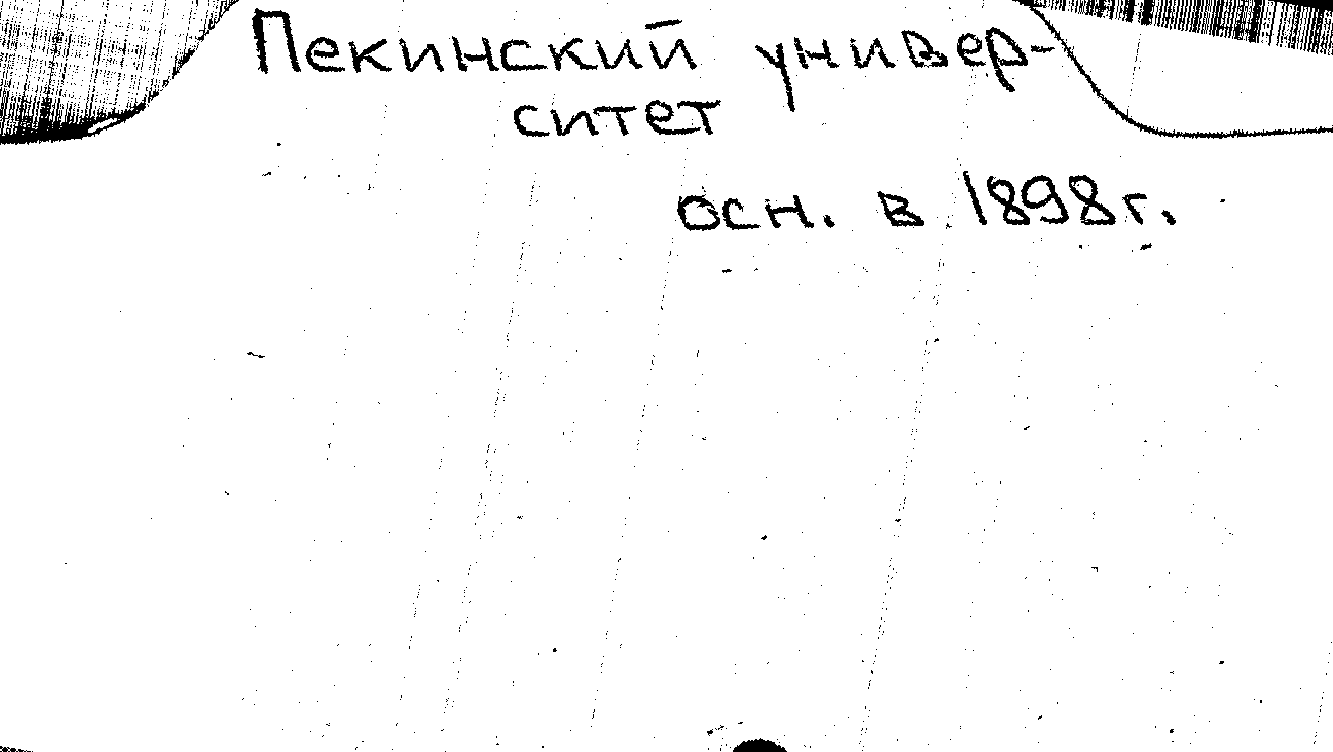 Пекинский универ-
ситет
осн. в 1898г.